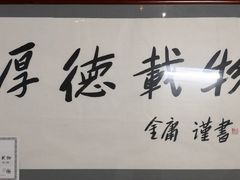 厚德載物
金庸 谨書